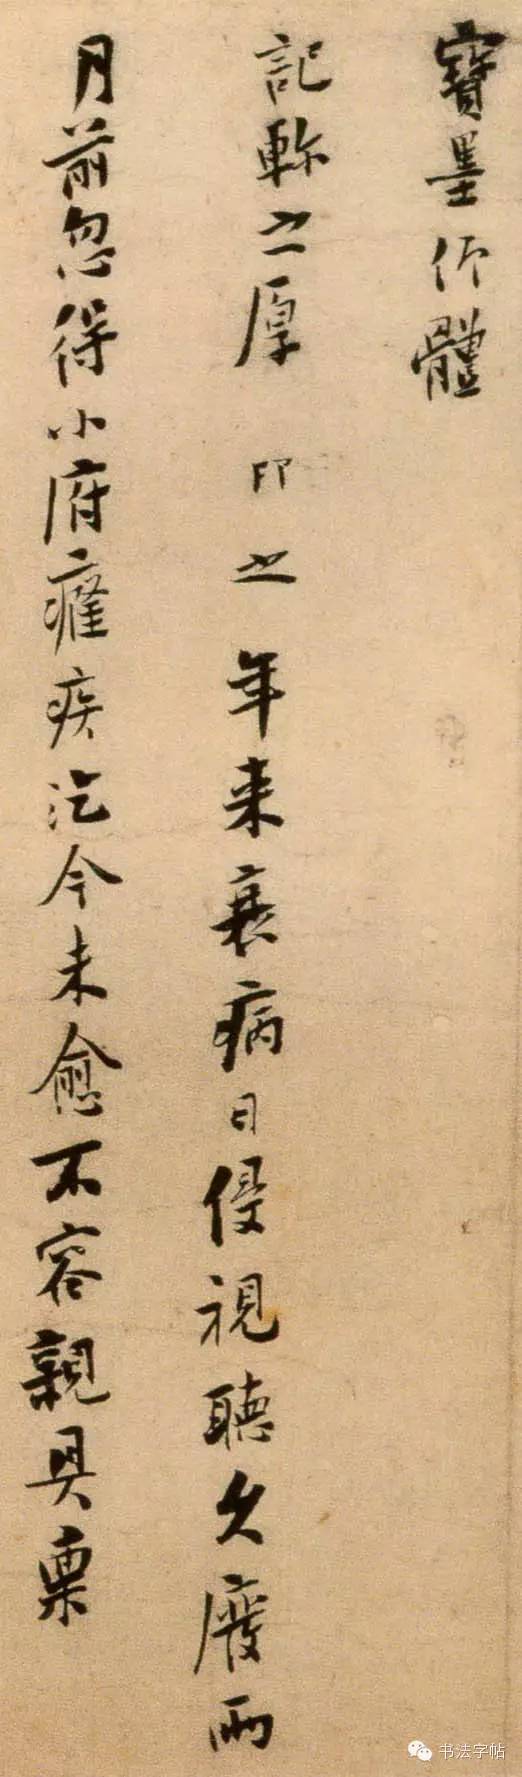 寶墨仰體
記軫之厚 印之 年来衰病日侵視聴久廢兩
月前忽得小府癃疾迄今未愈不容親具稟
书法字帖